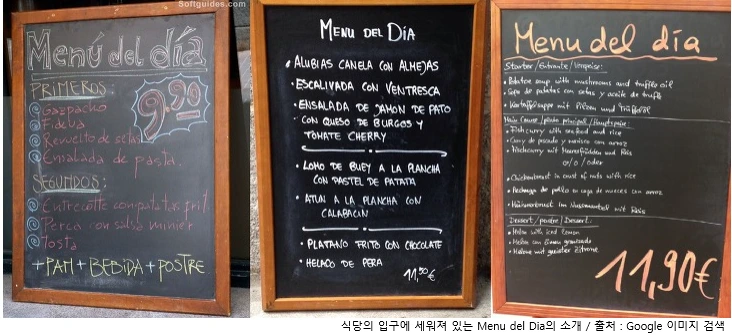 Softguides.com
Menú del día
PRIMEROS:
9,90
Gazpacho
Fideua
Revuelto de setas
Ensalada de pasta.
SEGUNDOS:
Entrecotte con patatas frit.
Perca con salsa
Tosta
+PAM+BEBIDA+POSTRE
MENU DEL DIA
• ALUBIAS CANELA CON ALMEJAS
• ESCALIVADA CON VENTRESCA
• ENSALADA DE JAMON DE PATO
CON QUESO DE BURGOS Y
TOMATE CHERRY
• LOMO DE BUEY A LA PLANCHA
CON PASTEL DE PATATA
• ATUN A LA PLANCHA CON
CALABACIN
• PLATANO FRITO CON CHOCOLATE
• HELADO DE PERA
11,50 €
Menu del día
Starter / Entrante / Vorspeise:
• Potatoe soup with mushrooms and truffle oil
• Sopa de patatas con setas y aceite de trufa
• Kartoffelsuppe mit Pilzen und Trüffelöl
Main Course / plato principal / Hauptspeise:
• Fishcurry with seafood and rice
• Curry de pescado y marisco con arroz
• Fischcurry mit Meeresfrüchten und Reis
or / o / oder
• Chickenbreast in crust of nuts with rice
• Pechuga de pollo en capa de nueces con arroz
• Hühnerbrust im Nussmantel mit Reis
Dessert / postre / Dessert:
• Melon with iced lemon
• Melon con limon granizado
• Melone mit geeister Zitrone
11,90€
식당의 입구에 세워져 있는 Menu del Dia의 소개 / 출처 : Google 이미지 검색